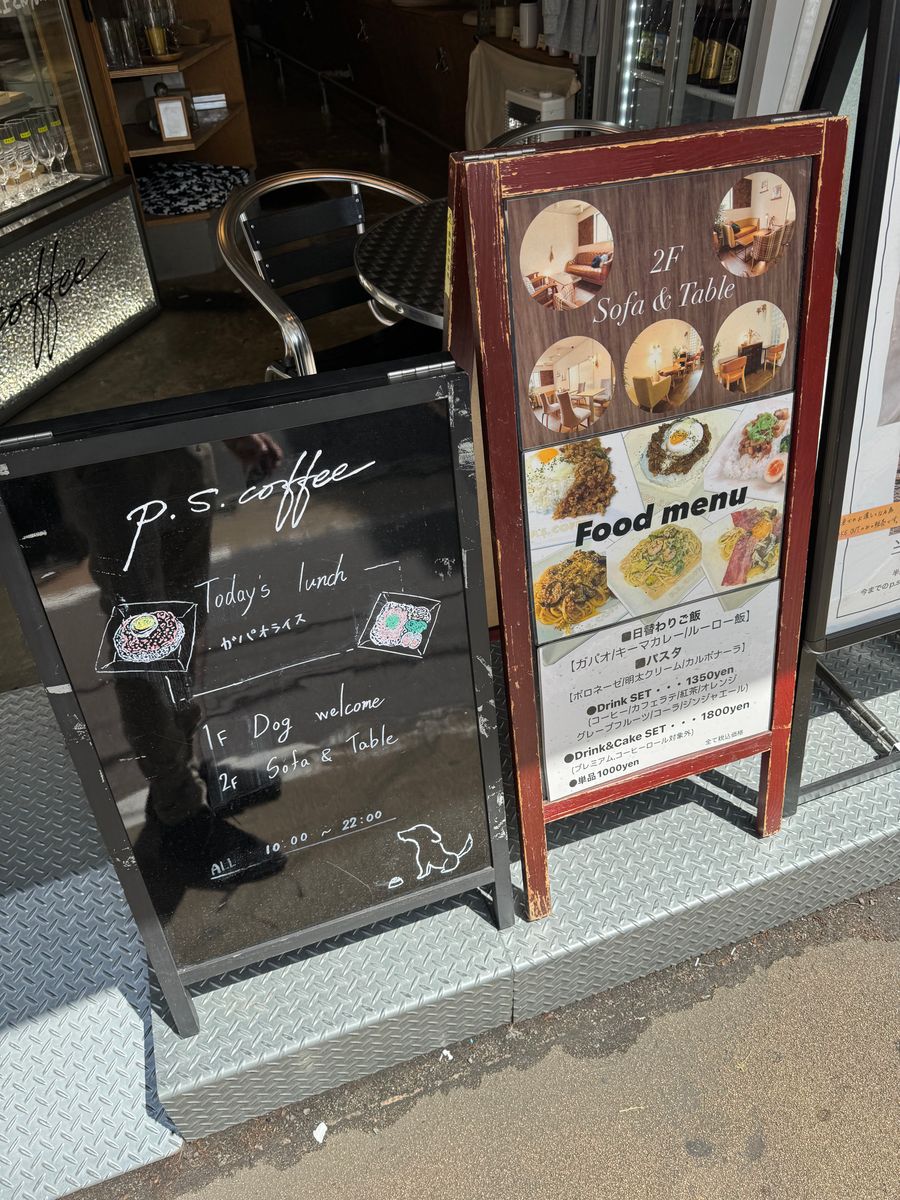 coffee
p.s.coffee
Today's lunch
・ガパオライス
1F Dog welcome
2F Sofa & Table
ALL 10:00 ~ 22:00
2F
Sofa & Table
Food menu
■日替わりご飯
【ガパオ/キーマカレー/ルーロー飯】
■パスタ
【ボロネーゼ/明太クリーム/カルボナーラ】
●Drink SET・・・1350yen
(コーヒー/カフェラテ/紅茶/オレンジ
グレープフルーツ/コーラ/ジンジャエール)
●Drink&Cake SET・・・1800yen
(プレミアム,コーヒーロール対象外)
●単品1000yen
全て税込価格
今までのp.s